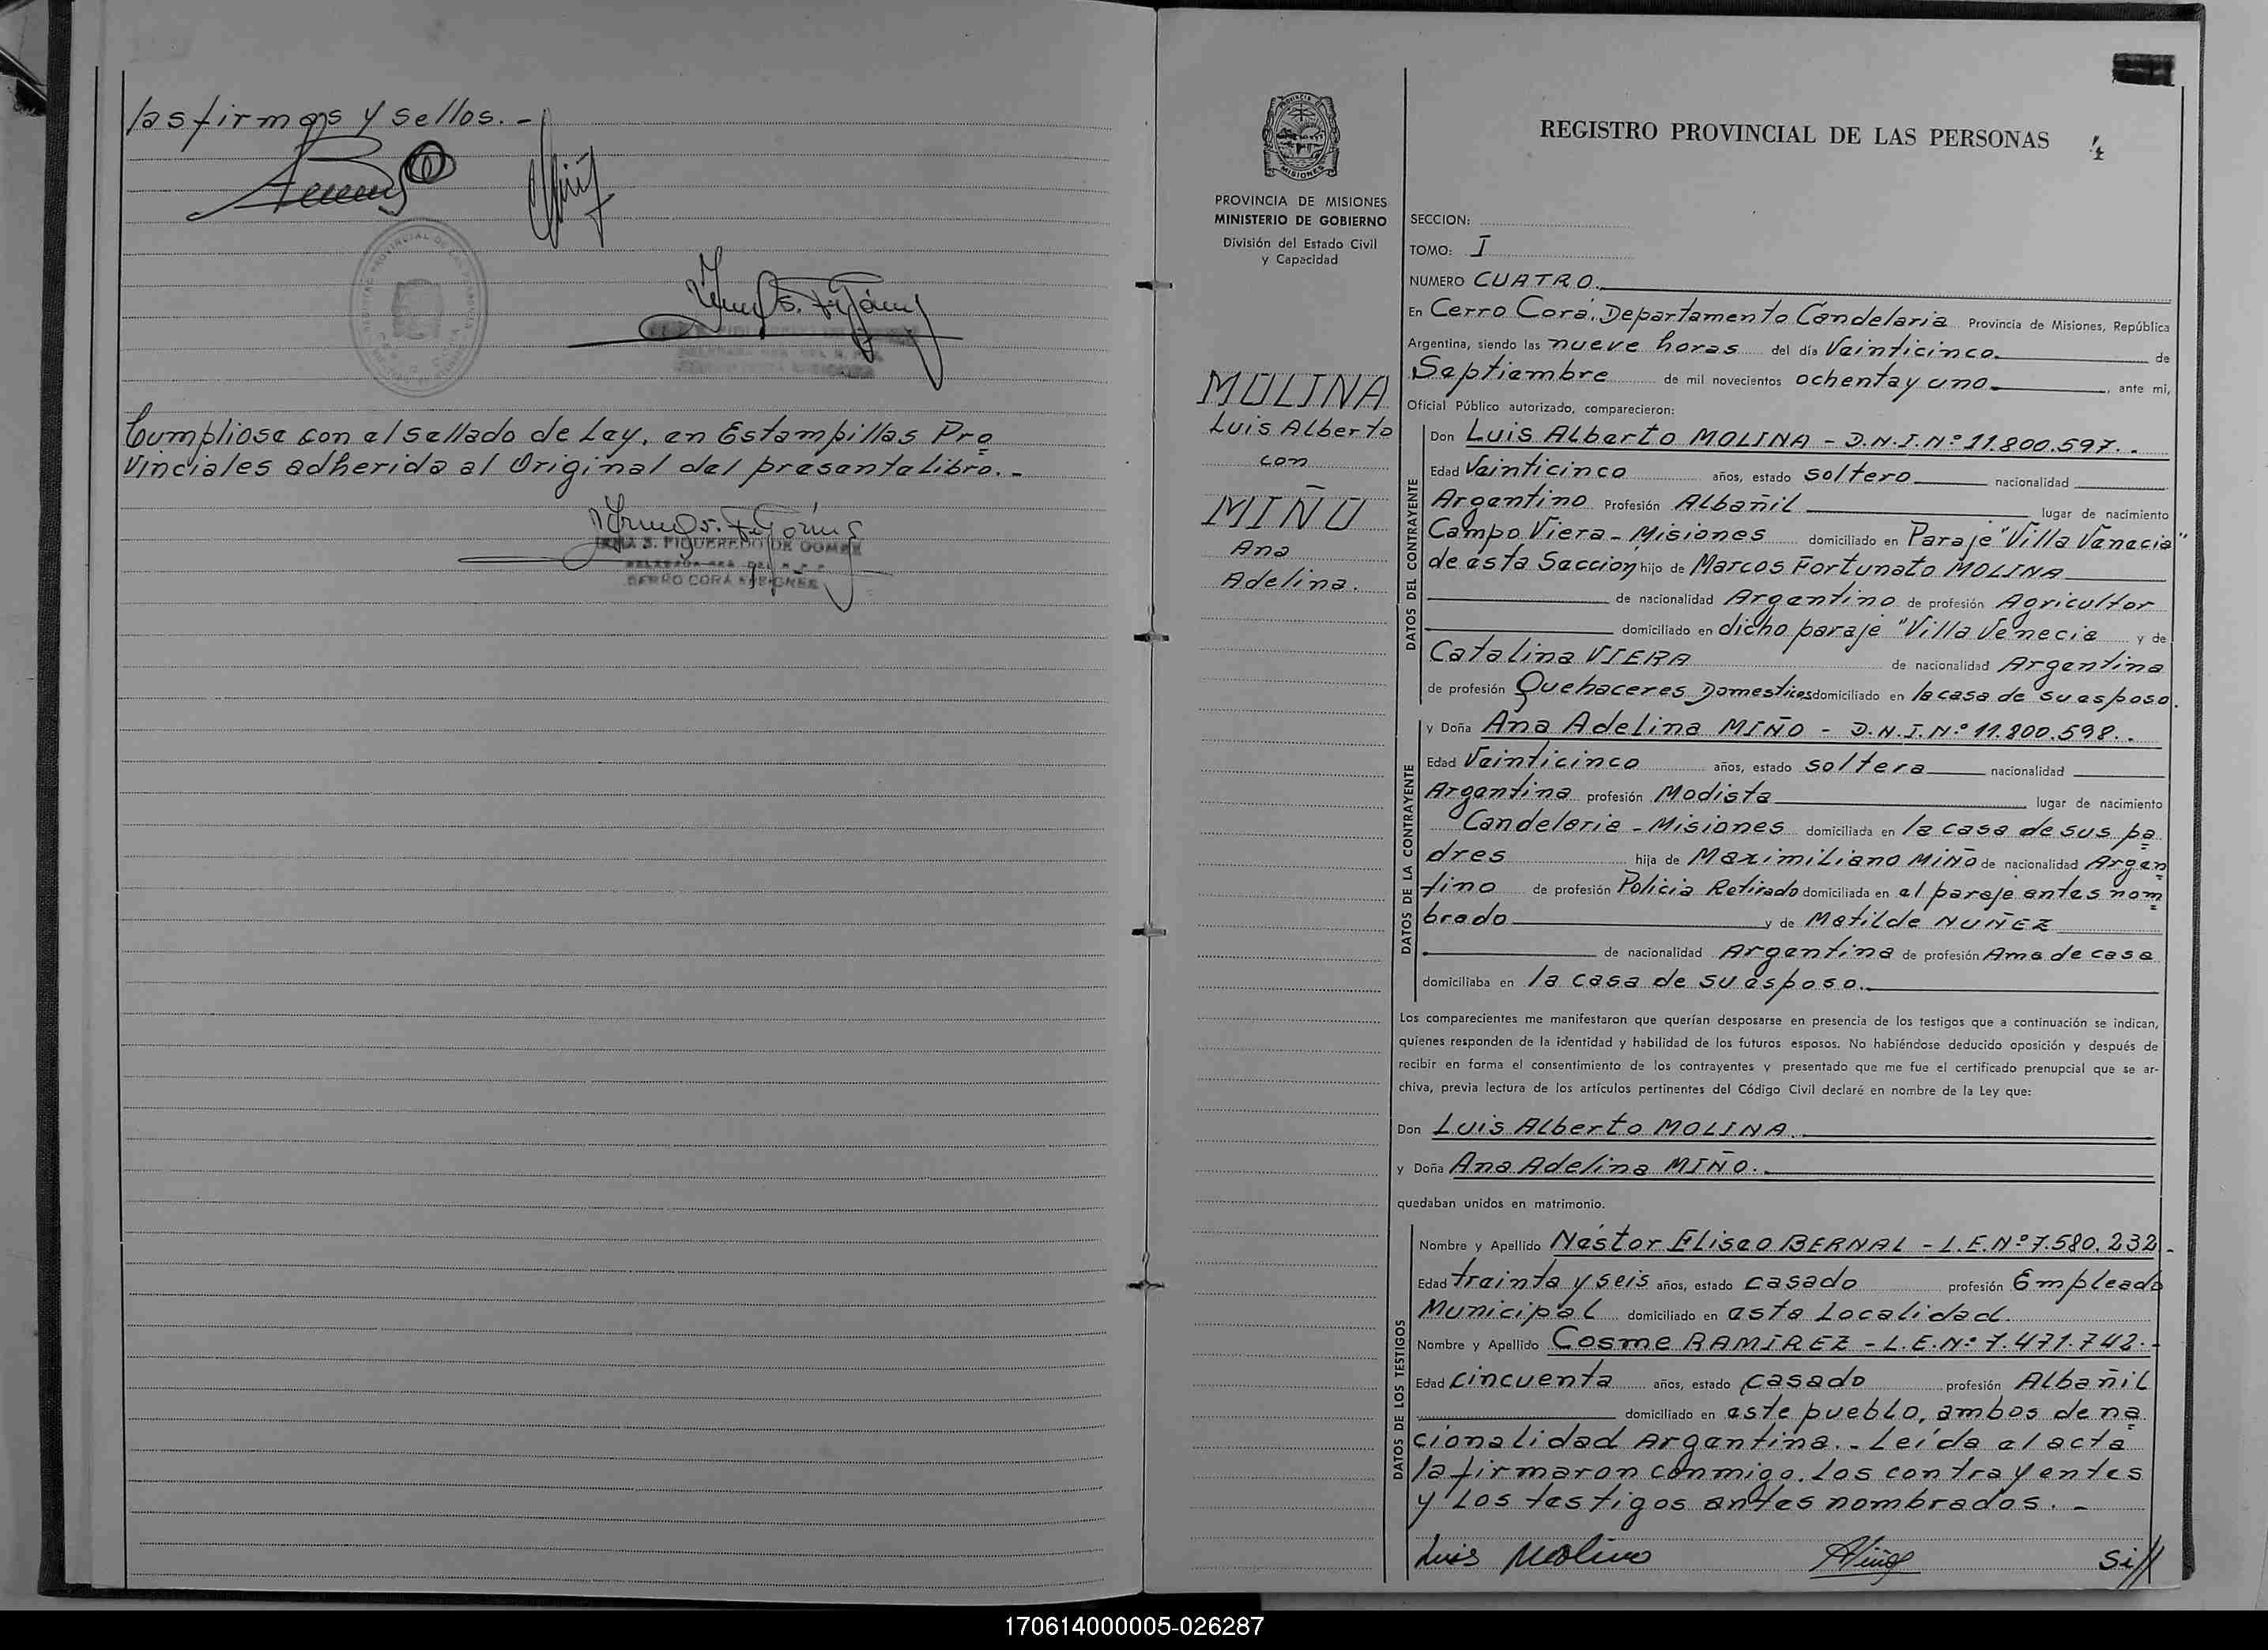 las firmas y sellos. -
Cumpliose con el sellado de Ley, en Estampillas Pro
vinciales adherida al Original del presente Libro. -
IRMA S. FIGUEREDO DE GOMEZ
CERRO CORÁ MISIONES
PROVINCIA DE MISIONES
MINISTERIO DE GOBIERNO
División del Estado Civil
y Capacidad
MOLINA
Luis Alberto
con
MIÑO
Ana
Adelina.
REGISTRO PROVINCIAL DE LAS PERSONAS 4
SECCION:
TOMO: I
NUMERO CUATRO.
En Cerro Corá, Departamento Candelaria Provincia de Misiones, República
Argentina, siendo las nueve horas del día Veinticinco de
Septiembre de mil novecientos ochenta y uno , ante mi,
Oficial Público autorizado, comparecieron:
DATOS DEL CONTRAYENTE
Don Luis Alberto MOLINA - D.N.I.Nº 11.800.597. .
Edad Veinticinco años, estado soltero nacionalidad
Argentino Profesión Albañil lugar de nacimiento
Campo Viera - Misiones domiciliado en Paraje "Villa Venecia"
de esta Sección hijo de Marcos Fortunato MOLINA
de nacionalidad Argentino de profesión Agricultor
domiciliado en dicho paraje "Villa Venecia y de
Catalina VIERA de nacionalidad Argentina
de profesión Quehaceres Domesticos domiciliado en la casa de su esposo.
DATOS DE LA CONTRAYENTE
y Doña Ana Adelina MIÑO - D.N.I.Nº 11.800.598. .
Edad Veinticinco años, estado soltera nacionalidad
Argentina profesión Modista lugar de nacimiento
Candelaria - Misiones domiciliada en la casa de sus pa
dres hija de Maximiliano MIÑO de nacionalidad Argen
tino de profesión Policia Retirado domiciliada en el paraje antes nom
brado y de Matilde NUÑEZ
de nacionalidad Argentina de profesión Ama de casa
domiciliaba en la casa de su esposo.
Los comparecientes me manifestaron que querían desposarse en presencia de los testigos que a continuación se indican,
quienes responden de la identidad y habilidad de los futuros esposos. No habiéndose deducido oposición y después de
recibir en forma el consentimiento de los contrayentes y presentado que me fue el certificado prenupcial que se ar-
chiva, previa lectura de los artículos pertinentes del Código Civil declaré en nombre de la Ley que:
Don Luis Alberto MOLINA.
y Doña Ana Adelina MIÑO.
quedaban unidos en matrimonio.
DATOS DE LOS TESTIGOS
Nombre y Apellido Néstor Eliseo BERNAL - L.E.Nº 7.580.232 -
Edad treinta y seis años, estado casado profesión Empleado
Municipal domiciliado en esta Localidad.
Nombre y Apellido Cosme RAMIREZ - L.E.Nº 7.471.742. -
Edad cincuenta años, estado casado profesión Albañil
domiciliado en este pueblo, ambos de na
cionalidad Argentina. - Leída el acta
la firmaron conmigo, los contrayentes
y los testigos antes nombrados. -
Luis Molina Miño Si//
170614000005-026287